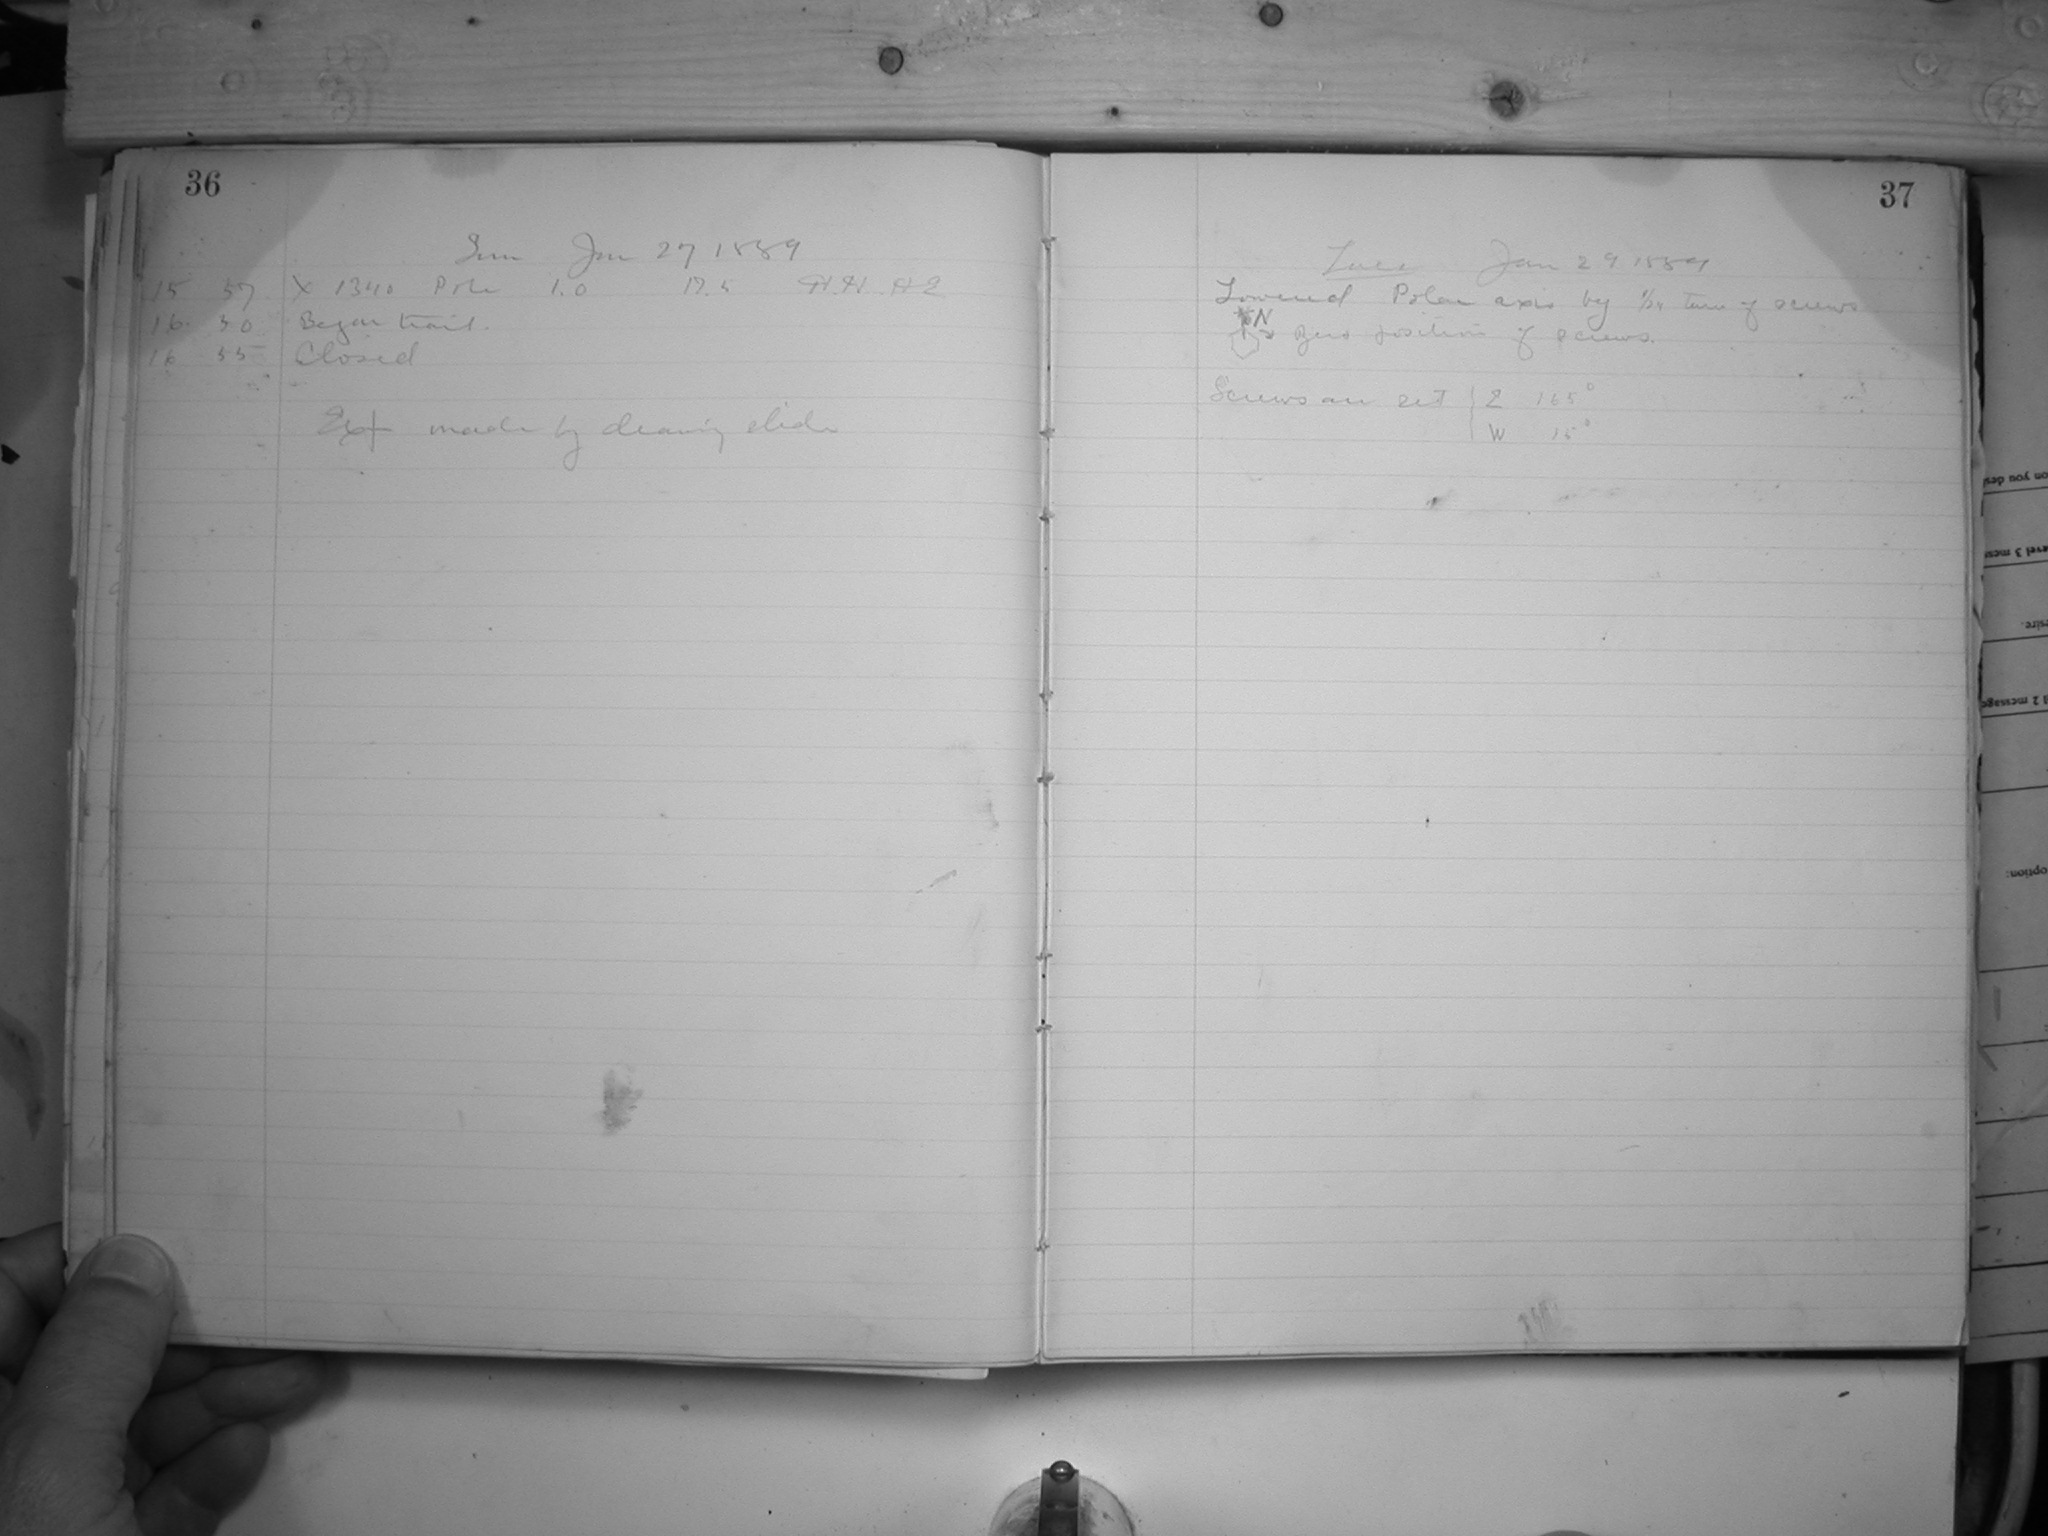 36
Sun Jan 27 1889
15 57 X 1340 Pole 1.0 17.5 H.H. H E
16 50 Began trail.
16 55 Closed
Exp made by drawing slide
37
Tues Jan 29 1889
Lowered Polar axis by 1/24 turn of screws
N
Zero position of screws.
Screws are set E 165°
W 15°
on you desi
evel 3 mess
esire.
l 2 message
option: